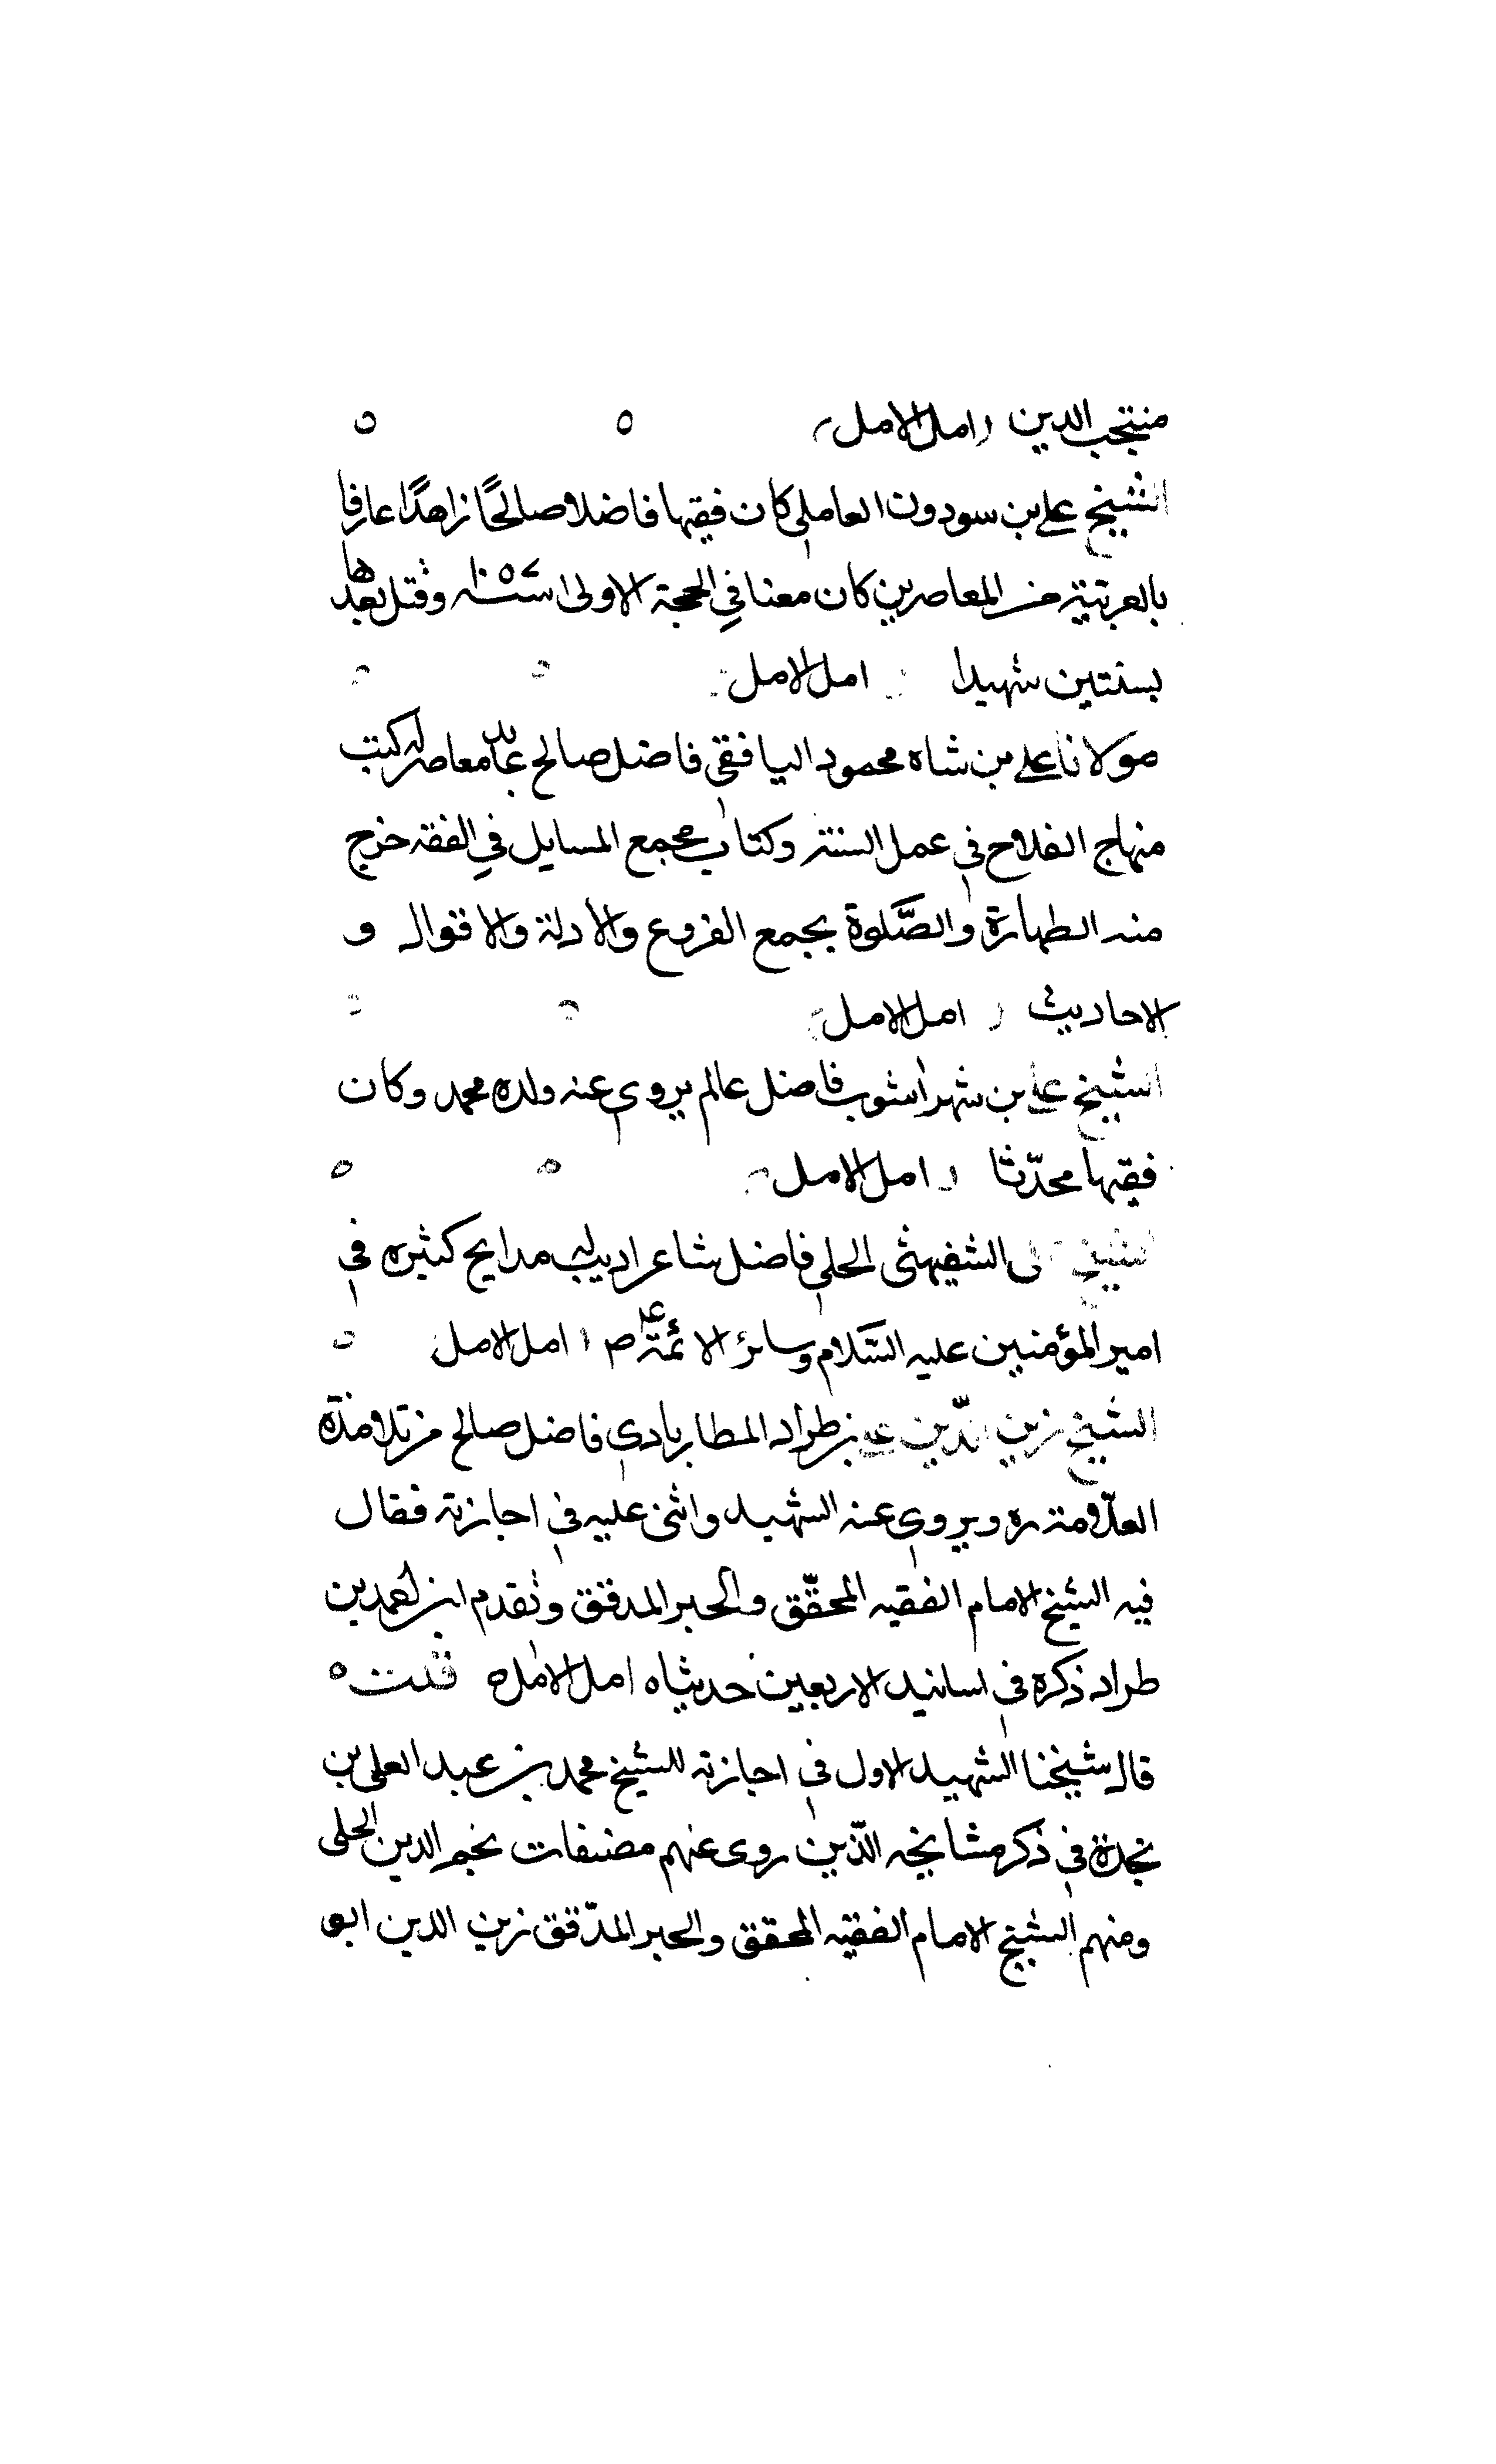 منتجب الدين ( امل الامل )
الشيخ علي بن سودون العاملي كان فقيها فاضلا صالحًا زاهدًا عارفا
بالعربية من المعاصرين كان معنا في الحجة الاولى سنة وقتل بعدها
بسنتين شهيدا امل الامل
مولانا علي بن شاه محمود اليافقي فاضل صالح عابد معاصر له كتب
منهاج الفلاح في عمل السنة وكتاب مجمع المسايل في الفقه خرج
منه الطهارة والصَّلوة بجمع الفروع والادلة والاقوال و
الاحاديث ( امل الامل
الشيخ علي بن شهراشوب فاضل عالم يروي عنه ولده محمد وكان
فقيها محدّثا ( امل الامل
الشيخ علي الشفيهني الحلي فاضل شاعر اديب له مدايح كثيره في
امير المؤمنين عليه السَّلام وسائر الائمة ع م ( امل الامل
الشيخ زين الدّين علي بن طراد المطاربادي فاضل صالح من تلامذة
العلّامة ره ويروي عنه الشهيد واثنى عليه في اجازته فقال
فيه الشيخ الامام الفقيه المحقّق والحبر المدقق وتقدم ابن احمد بن
طراد ذكره في اسانيد الاربعين حديثا ه امل الامل ه قلت ه
قال شيخنا الشهيد الاول في اجازته للشيخ محمد بن عبد العلي بن
نجدة في ذكر مشايخه الّذين روى عنهم مصنفات نجم الدين الحلي
ومنهم الشيخ الامام الفقيه المحقق والحبر المدّقق زين الدين ابو